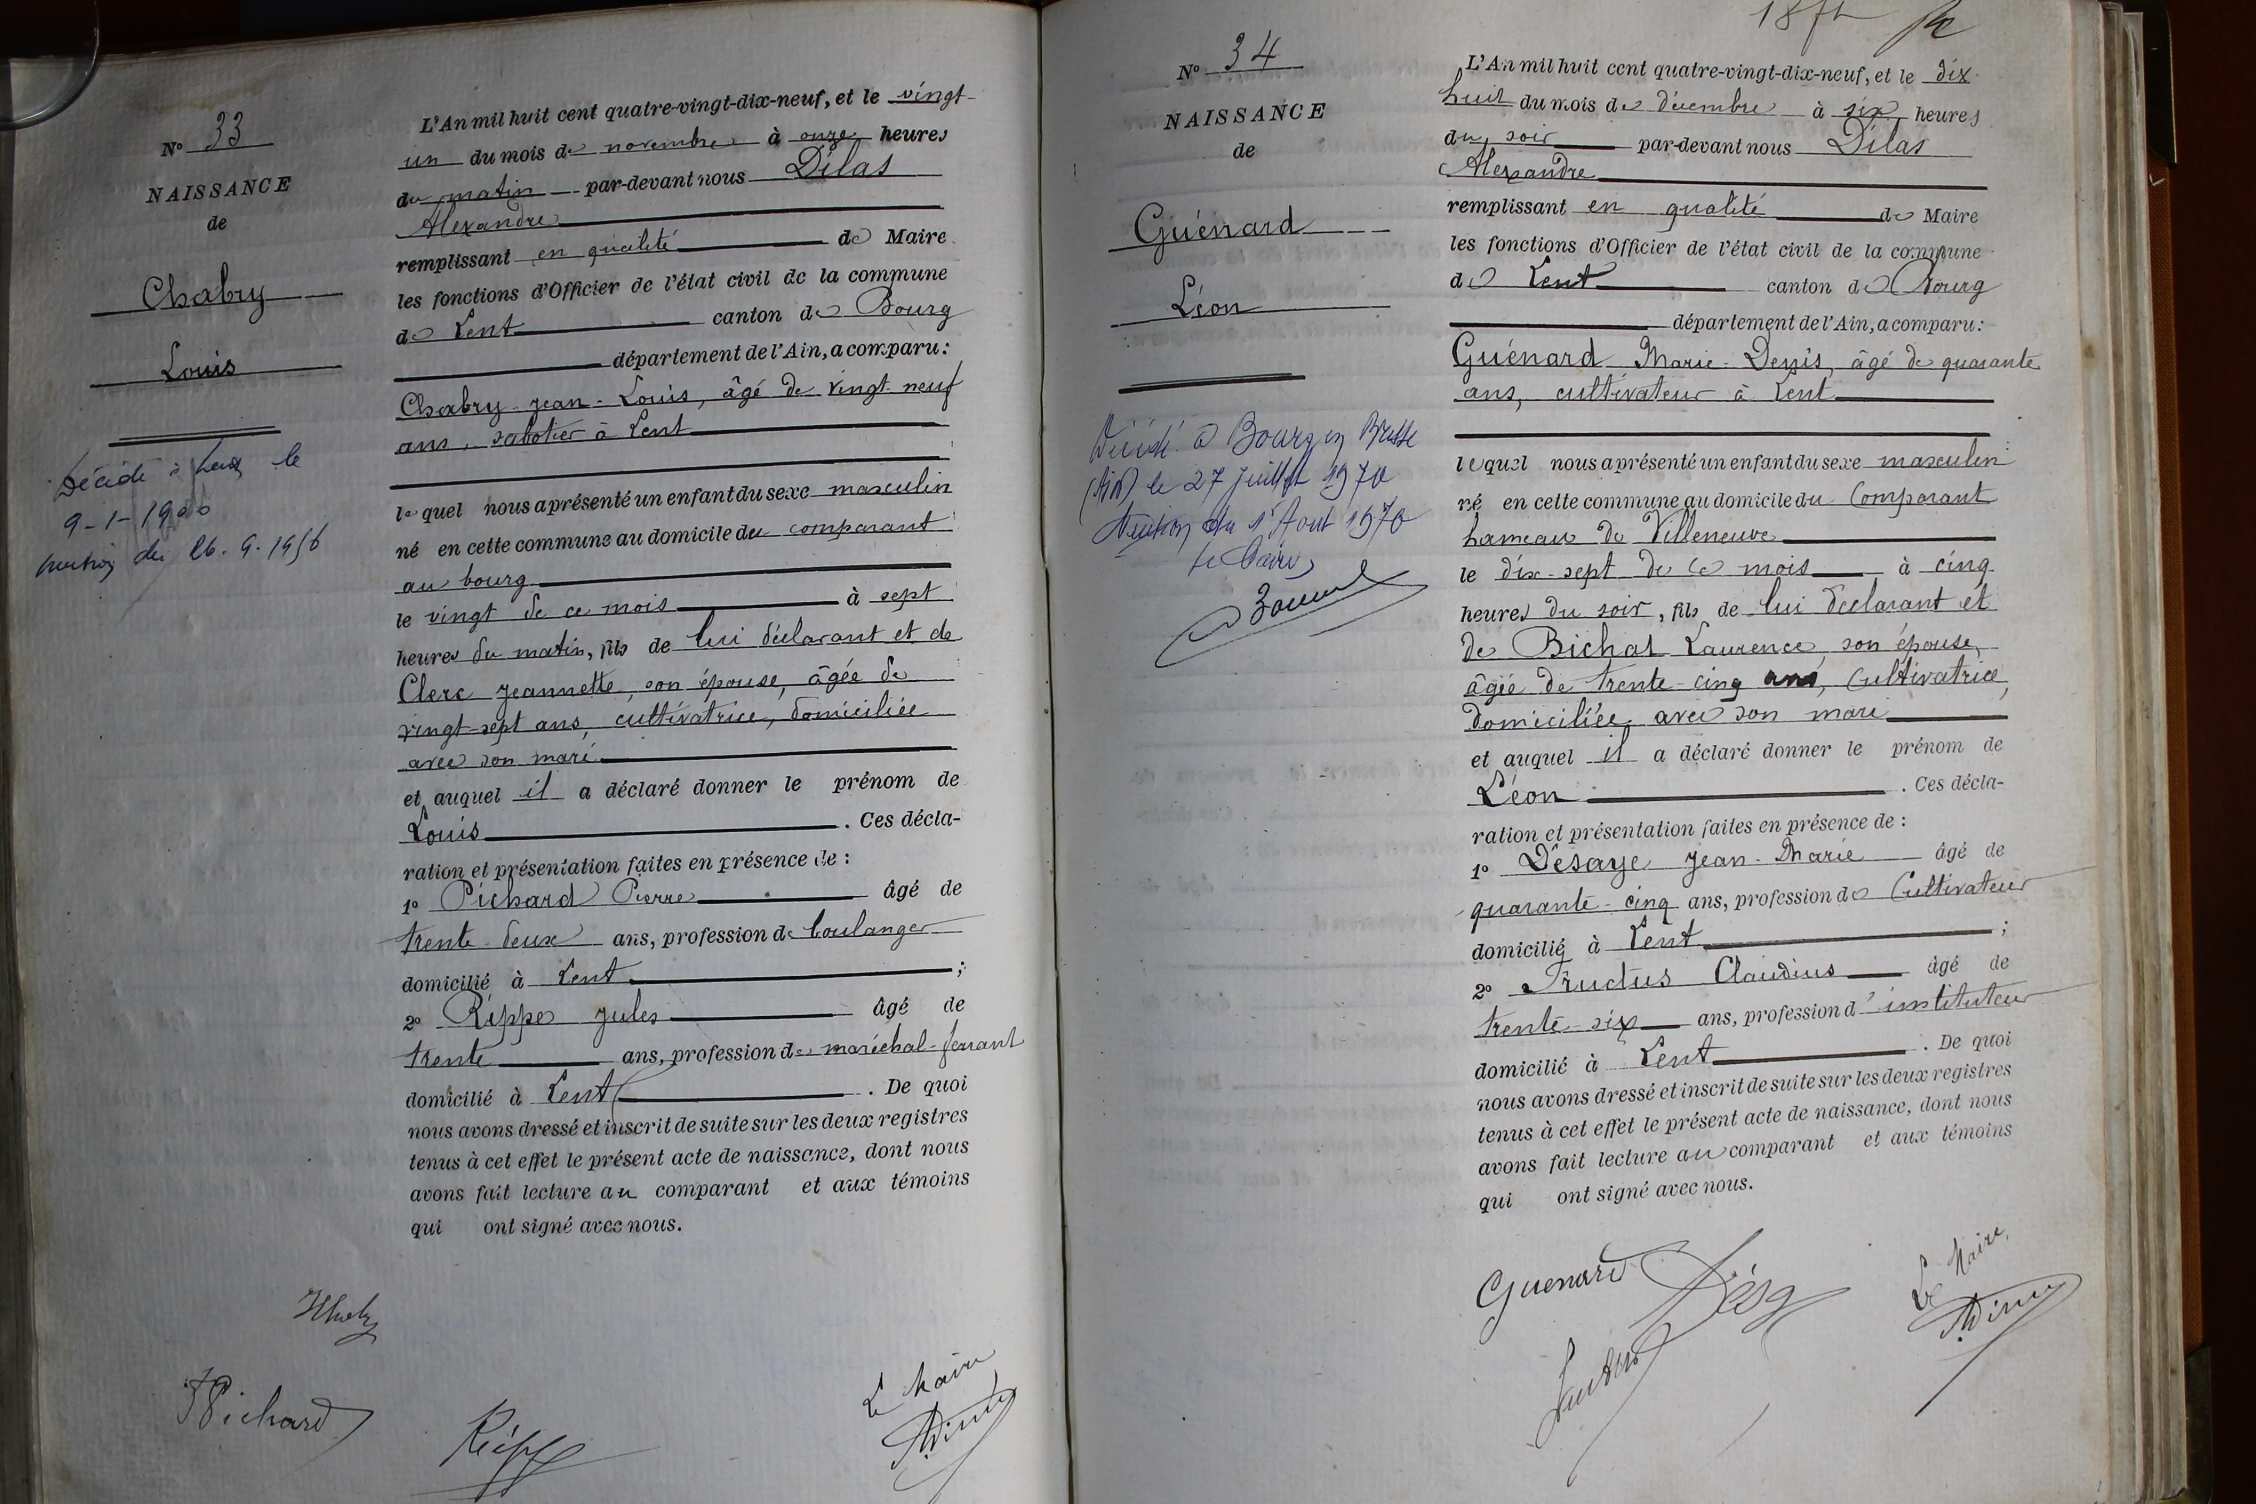 N° 33
NAISSANCE
de
Chabry
Louis
Décédé à le
9-1-19
du 26.9.1956
L'An mil huit cent quatre-vingt-dix-neuf, et le vingt-
un du mois de novembre à onze heures
du matin par-devant nous Dilas
Alexandre
remplissant en qualité de Maire
les fonctions d'Officier de l'état civil de la commune
de Lent canton de Bourg
département de l'Ain, a comparu:
Chabry Jean-Louis, âgé de vingt-neuf
ans, sabotier à Lent
lequel nous a présenté un enfant du sexe masculin
né en cette commune au domicile du comparant
au bourg
le vingt de ce mois à sept
heures du matin, fils de lui déclarant et de
Clerc Jeannette, son épouse, âgée de
vingt-sept ans, cultivatrice, domiciliée
avec son mari
et auquel il a déclaré donner le prénom de
Louis. Ces décla-
ration et présentation faites en présence de:
1° Pichard Pierre âgé de
trente-deux ans, profession de boulanger
domicilié à Lent;
2° Rippe Jules âgé de
trente ans, profession de maréchal-ferrant
domicilié à Lent. De quoi
nous avons dressé et inscrit de suite sur les deux registres
tenus à cet effet le présent acte de naissance, dont nous
avons fait lecture au comparant et aux témoins
qui ont signé avec nous.
Pichard
Le Maire
N° 34
NAISSANCE
de
Guénard
Léon
Décédé à Bourg en Bresse
(Ain) le 27 juillet 1970
Mention du 1er Août 1970
le Maire
L'An mil huit cent quatre-vingt-dix-neuf, et le dix-
huit du mois de décembre à six heures
du soir par-devant nous Dilas
Alexandre
remplissant en qualité de Maire
les fonctions d'Officier de l'état civil de la commune
de Lent canton de Bourg
département de l'Ain, a comparu:
Guénard Marie-Denis, âgé de quarante
ans, cultivateur à Lent
lequel nous a présenté un enfant du sexe masculin
né en cette commune au domicile du Comparant
hameau de Villeneuve
le dix-sept de ce mois à cinq
heures du soir, fils de lui déclarant et
de Bichat Laurence, son épouse,
âgée de trente-cinq ans, Cultivatrice,
domiciliée avec son mari
et auquel il a déclaré donner le prénom de
Léon. Ces décla-
ration et présentation faites en présence de:
1° Désaye Jean-Marie âgé de
quarante-cinq ans, profession de Cultivateur
domicilié à Lent;
2° Fructus Claudius âgé de
trente-six ans, profession d'instituteur
domicilié à Lent. De quoi
nous avons dressé et inscrit de suite sur les deux registres
tenus à cet effet le présent acte de naissance, dont nous
avons fait lecture au comparant et aux témoins
qui ont signé avec nous.
Guenard
Le Maire,